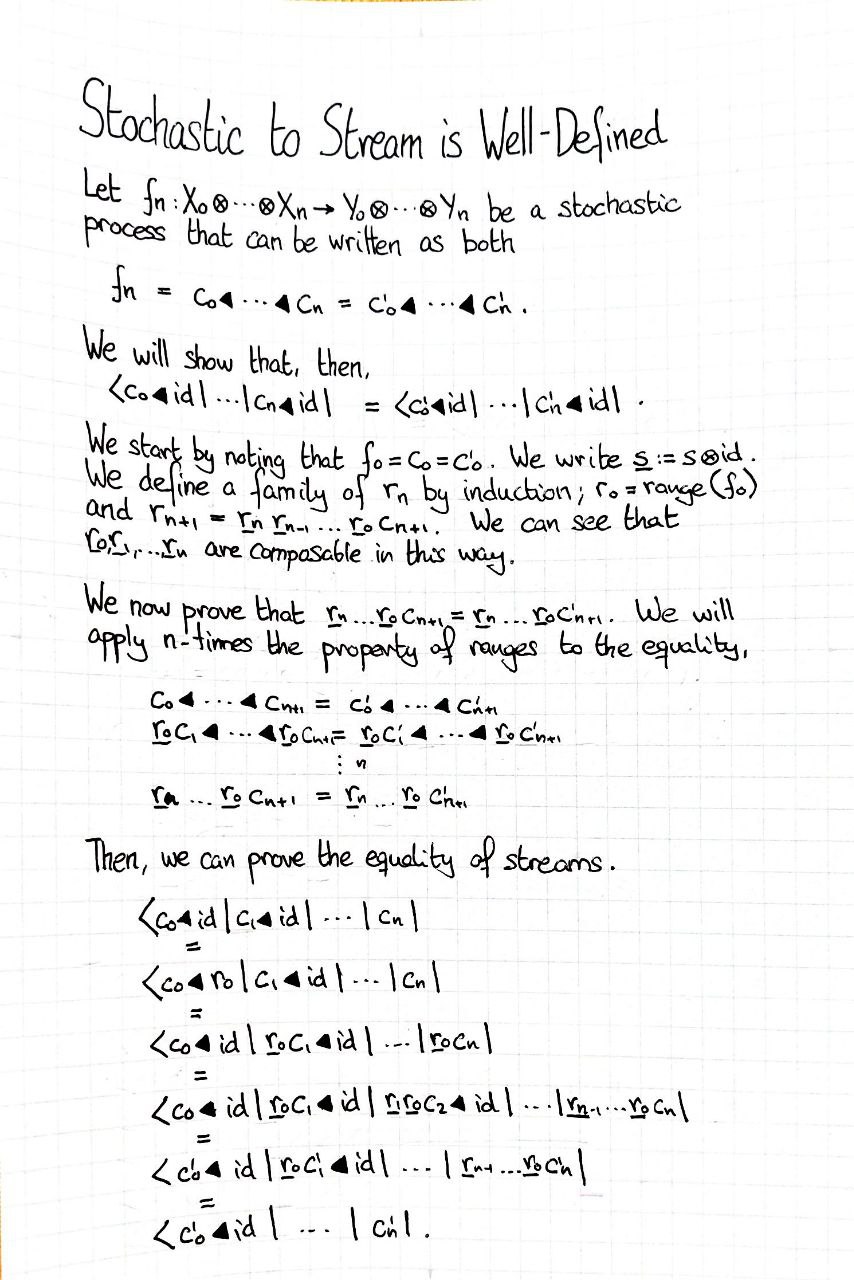 Stochastic to Stream is Well-Defined
Let fn : X₀⊗···⊗Xn → Y₀⊗···⊗Yn be a stochastic
process that can be written as both
fn = c₀◀···◀cn = c'₀◀···◀c'n.
We will show that, then,
⟨c₀◀id|...|cn◀id| = ⟨c'₀◀id|···|c'n◀id|.
We start by noting that f₀=c₀=c'₀. We write s̲ := s⊗id.
We define a family of rn by induction; r₀=range(f₀)
and rn+1 = r̲n r̲n-1 ... r̲₀ cn+1. We can see that
r̲₀,r̲₁,...r̲n are composable in this way.
We now prove that r̲n...r̲₀cn+1 = r̲n...r̲₀c'n+1. We will
apply n-times the property of ranges to the equality,
c₀◀···◀cn+1 = c'₀◀···◀c'n+1
r̲₀c₁◀···◀r̲₀cn+1 = r̲₀c'₁◀···◀r̲₀c'n+1
⋮ n
r̲n ... r̲₀ cn+1 = r̲n ... r̲₀ c'n+1
Then, we can prove the equality of streams.
⟨c₀◀id|c₁◀id|···|cn|
=
⟨c₀◀r₀|c₁◀id|···|cn|
=
⟨c₀◀id|r̲₀c₁◀id|...|r̲₀cn|
=
⟨c₀◀id|r̲₀c₁◀id|r̲₁r̲₀c₂◀id|...|r̲n-1...r̲₀cn|
=
⟨c'₀◀id|r̲₀c'₁◀id|...|r̲n-1...r̲₀c'n|
=
⟨c'₀◀id| ... |c'n|.